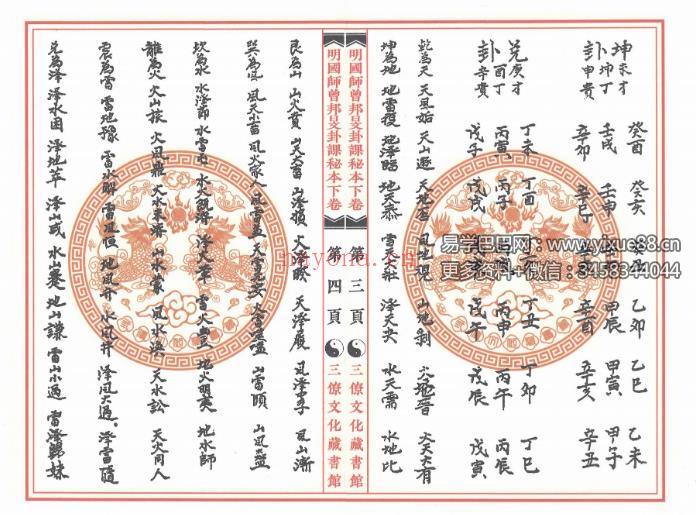 坤未才
卦坤丁
申貴
癸酉 癸亥 乙卯 乙巳 乙未
壬戌 壬申 甲辰 甲寅 甲子
辛卯 辛巳 辛酉 辛亥 辛丑
兌庚才
卦酉丁
辛貴
丁未 丁酉 丁丑 丁卯 丁巳
丙寅 丙子 丙申 丙午 丙辰
戊子 戊戌 戊午 戊辰 戊寅
乾為天 天風姤 天山遯 天地否 風地观 山地剝 火地晉 火天大有
坤為地 地雷復 地澤臨 地天泰 雷天大壯 澤天夬 水天需 水地比
明國師曾邦旻卦課秘本下卷 第三頁 三僚文化藏書館
明國師曾邦旻卦課秘本下卷 第四頁 三僚文化藏書館
艮為山 山火賁 山天大畜 山澤損 火澤睽 天澤履 風澤中孚 風山漸
巽為風 風天小畜 風火家人 風雷益 天雷无妄 火雷噬嗑 山雷頤 山風蠱
坎為水 水澤節 水雷屯 水火既濟 澤火革 雷火豐 地火明夷 地水師
離為火 火山旅 火風鼎 火水未濟 山水蒙 風水渙 天水訟 天火同人
震為雷 雷地豫 雷水解 雷風恒 地風升 水風井 澤風大過 澤雷隨
兌為澤 澤水困 澤地萃 澤山咸 水山蹇 地山謙 雷山小過 雷澤歸妹
易学巴巴网：www.yixue88.cn
更多资料+微信：3458344044
peyona.cn